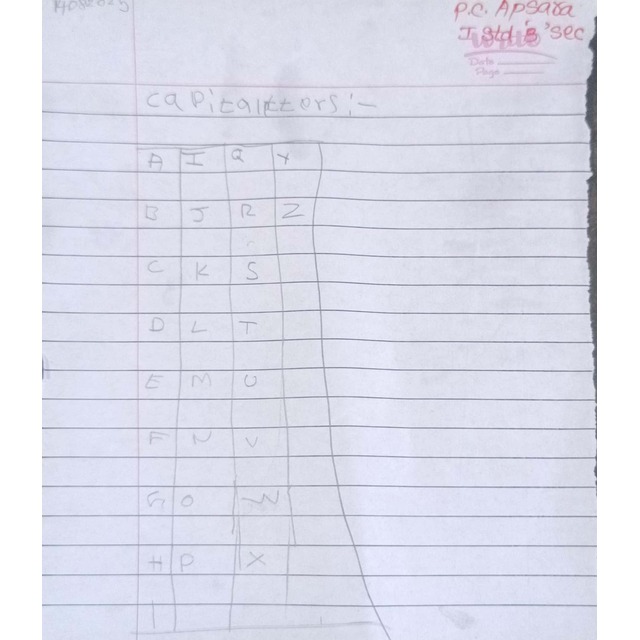 P.C. Apsara
I std 'B' sec
Date
Page
capitalttors:-
A I Q Y
B J R Z
C K S
D L T
E M U
F N V
G O W
H P X